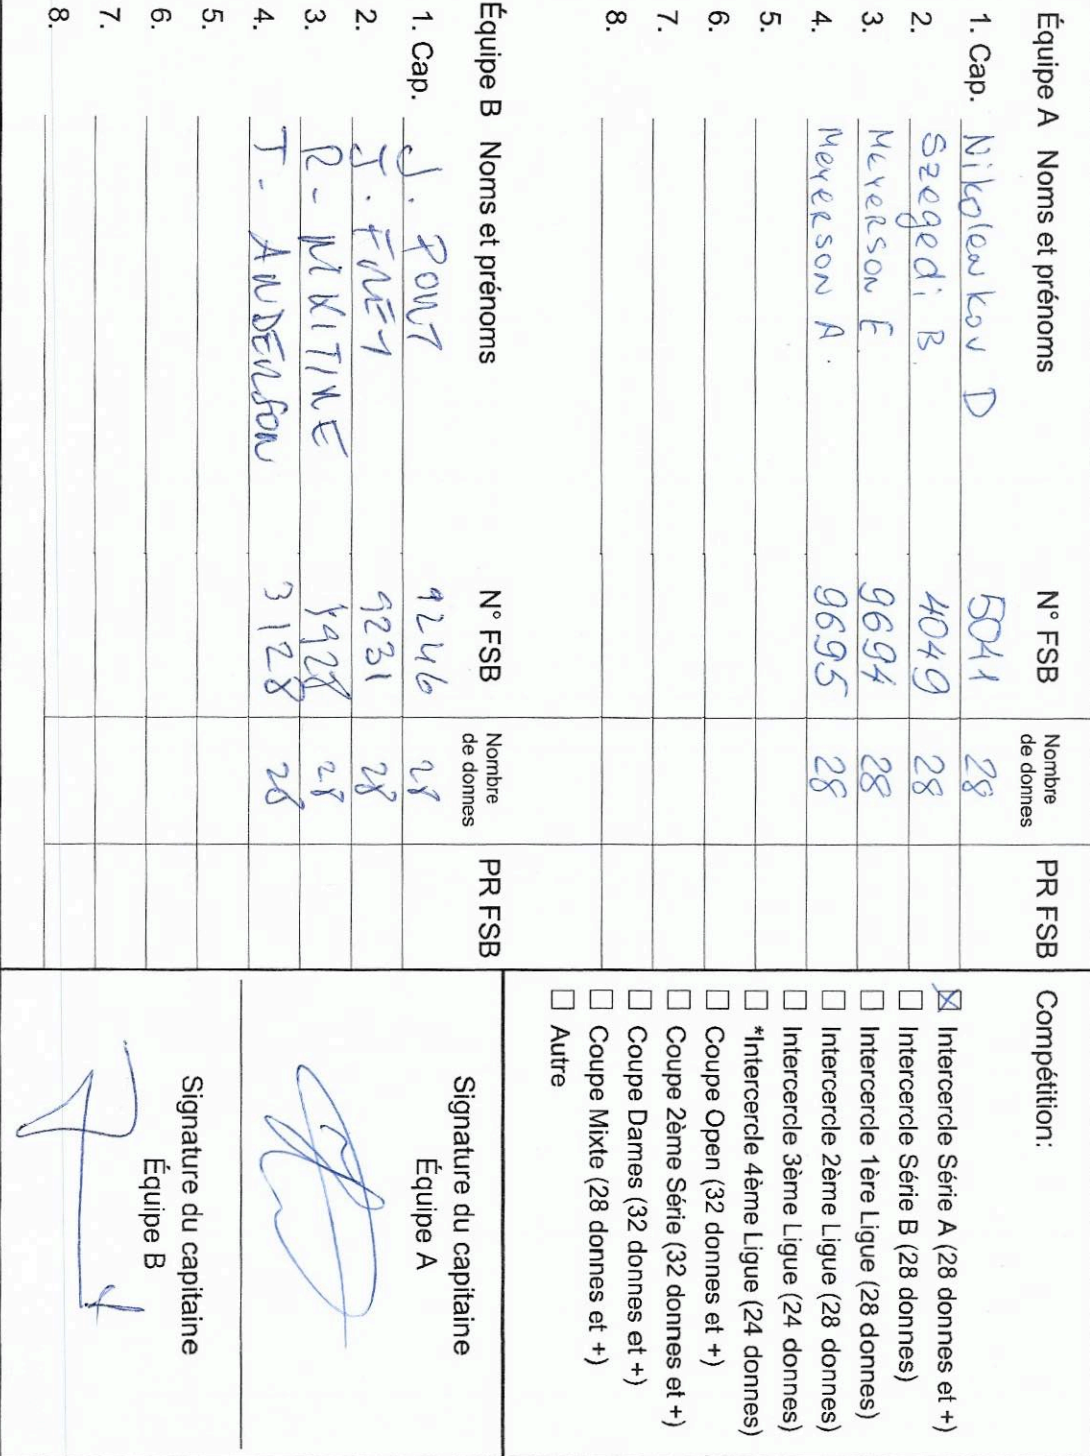 Équipe A Noms et prénoms N° FSB Nombre de donnes PR FSB
1. Cap. Nikolenkov D 5041 28
2. Szegedi B. 4049 28
3. Meyerson E 9694 28
4. Meyerson A. 9695 28
5.
6.
7.
8.
Équipe B Noms et prénoms N° FSB Nombre de donnes PR FSB
1. Cap. J. PONT 9246 28
2. J. 9231 28
3. R- 28
4. T- ANDERSON 3128 28
5.
6.
7.
8.
Compétition:
☒ Intercercle Série A (28 donnes et +)
☐ Intercercle Série B (28 donnes)
☐ Intercercle 1ère Ligue (28 donnes)
☐ Intercercle 2ème Ligue (28 donnes)
☐ Intercercle 3ème Ligue (24 donnes)
☐ *Intercercle 4ème Ligue (24 donnes)
☐ Coupe Open (32 donnes et +)
☐ Coupe 2ème Série (32 donnes et +)
☐ Coupe Dames (32 donnes et +)
☐ Coupe Mixte (28 donnes et +)
☐ Autre
Signature du capitaine
Équipe A
Signature du capitaine
Équipe B